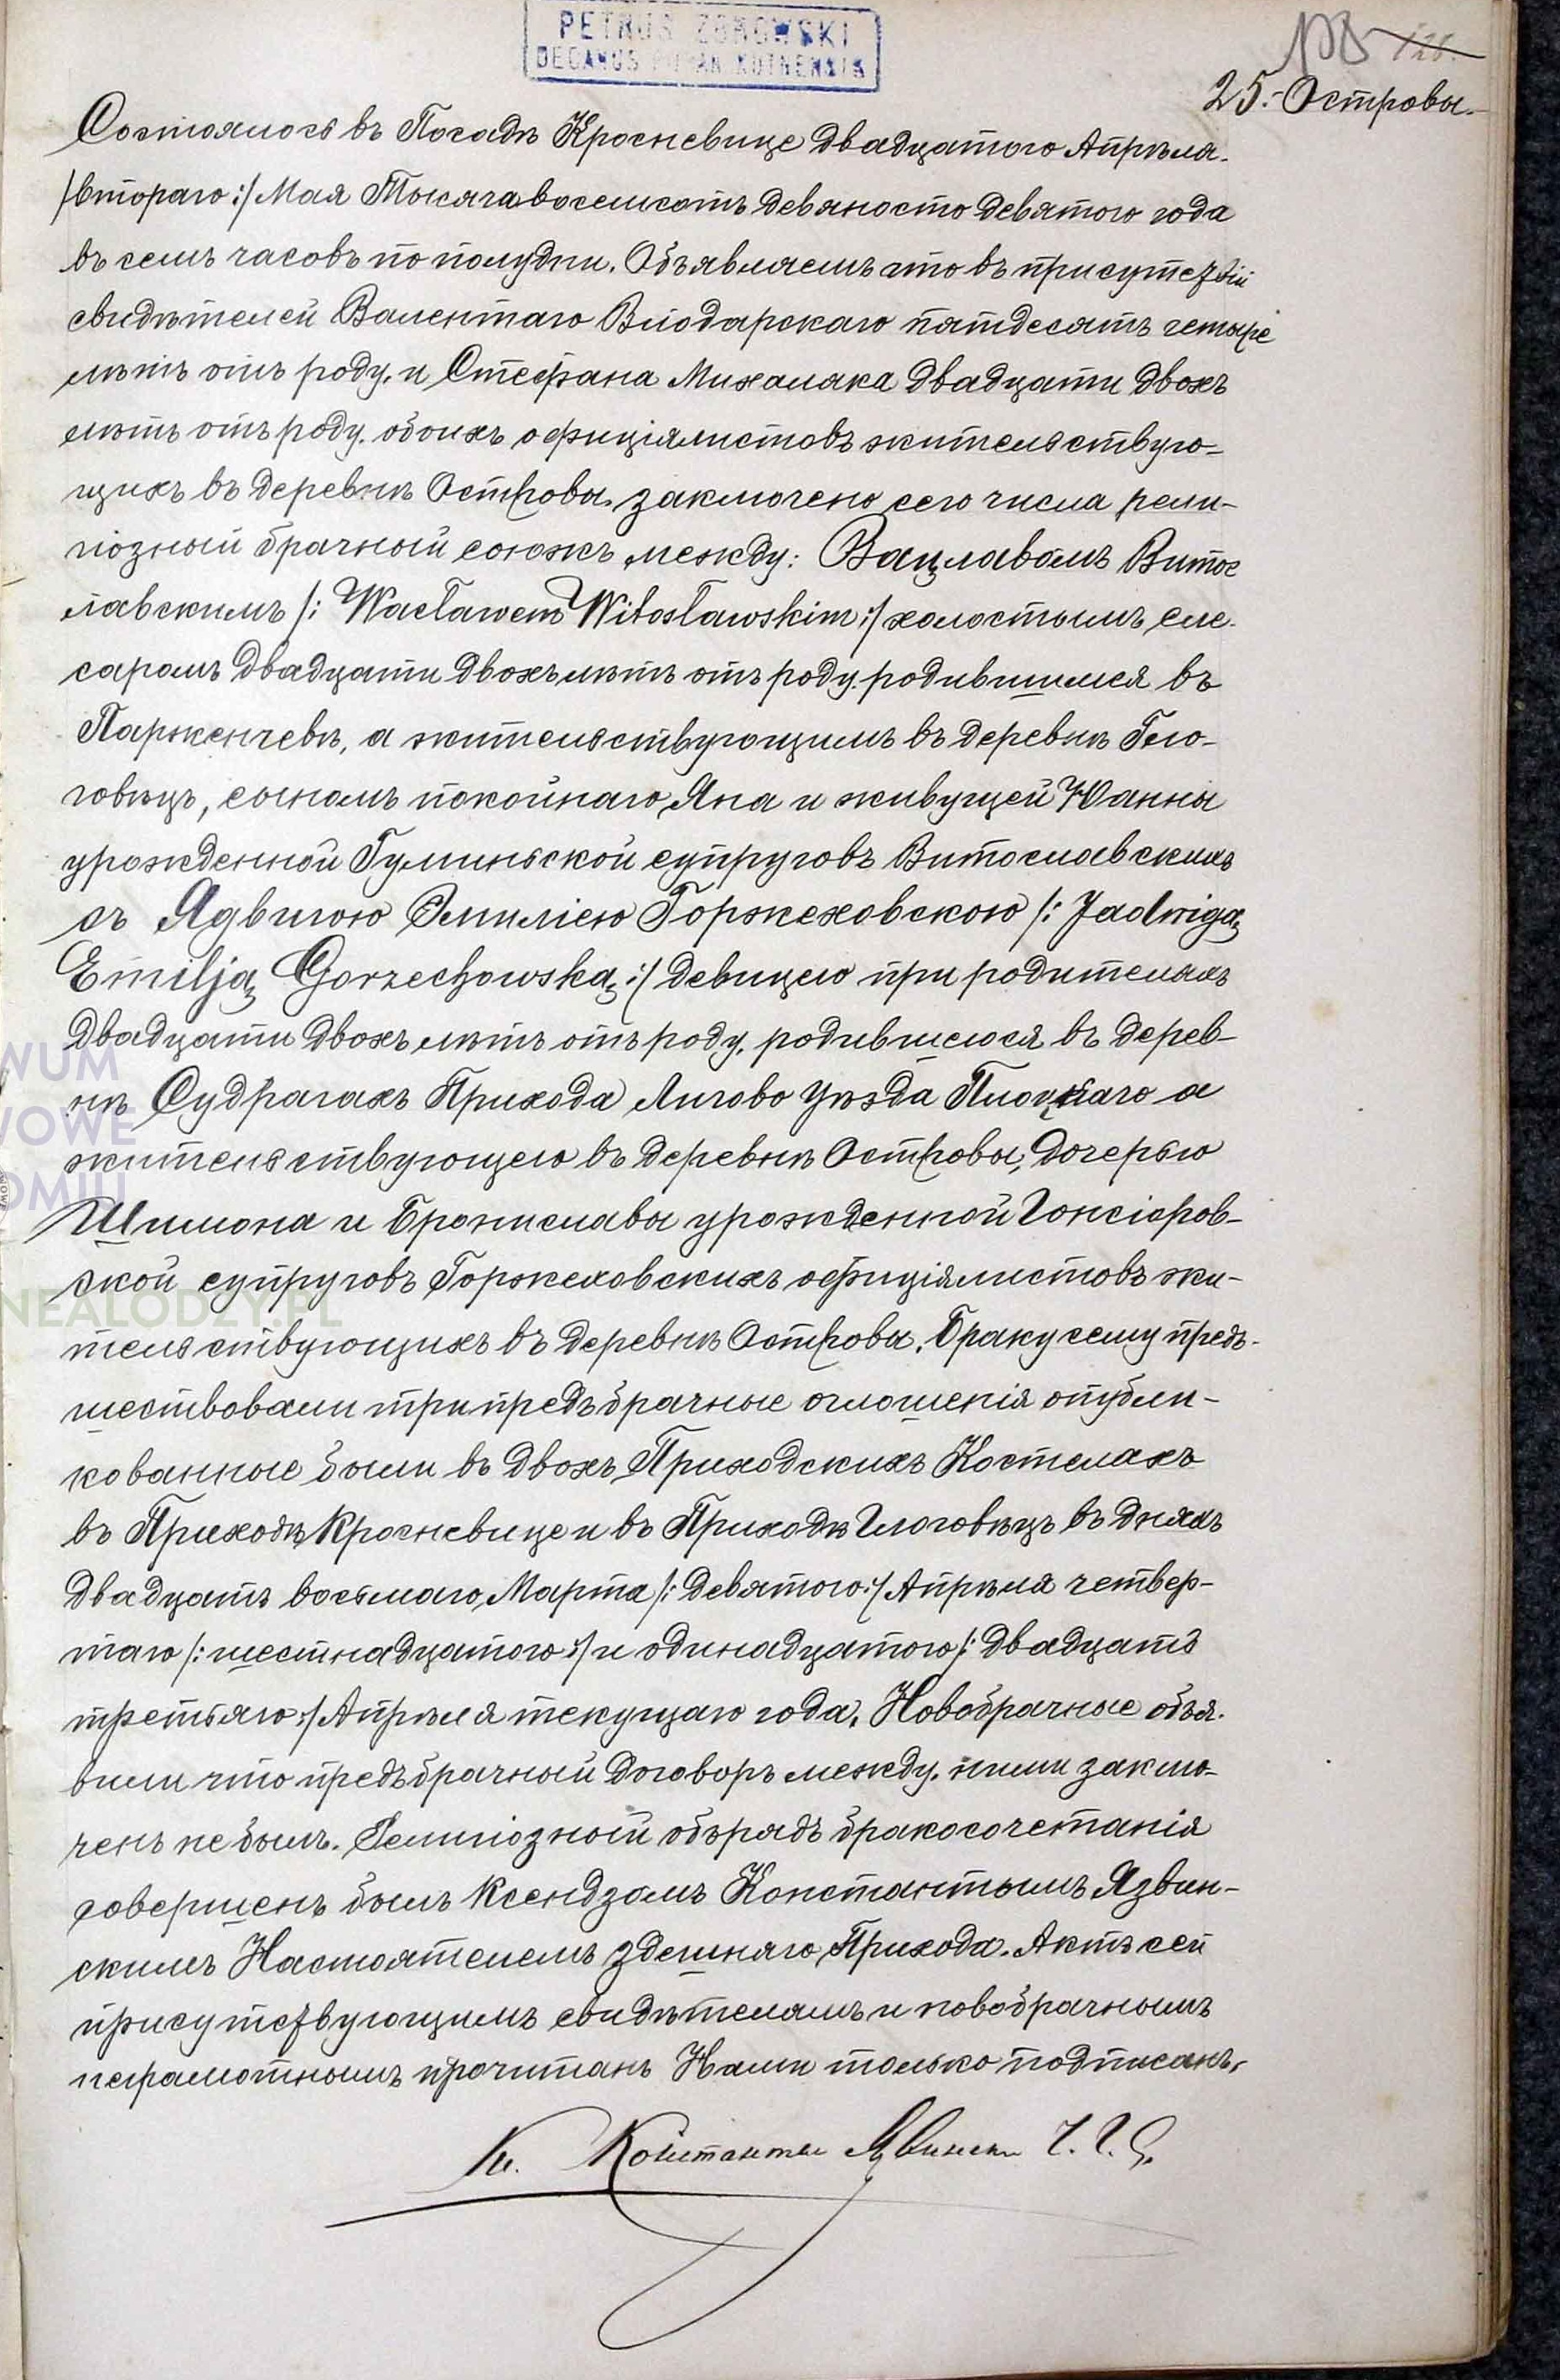 PETRUS ZBROWSKI
DECANUS KUTNENSIS
128.
25. Островы.
Состоялось въ Посадѣ Кросневице двадцатого Апрѣля
/:втораго:/ Мая Тысяча восемсотъ девяносто девятого года
въ семъ часовъ по полудни. Объявляемъ что въ присутствіи
свидѣтелей Валентаго Влодарскаго пятдесятъ четыре
лѣтъ отъ роду, и Стефана Михаляка двадцати двохъ
лѣтъ отъ роду, обоихъ офиціялистовъ жительствую-
щихъ въ деревнѣ Островы, заключено сего числа рели-
гіозный брачный союзъ между: Вацлавомъ Витос
лавскимъ /: Wacławem Witosławskim :/ холостымъ сле-
саромъ двадцати двохъ лѣтъ отъ роду, родившимся въ
Парженчевѣ, а жительствующимъ въ деревнѣ Гло-
говѣцъ, сыномъ покойнаго Яна и живущей Юанны
урожденной Гулиньской супруговъ Витославскихъ
съ Ядвигою Эмиліею Горжеховскою /: Jadwigą
Emilją Gorzechowską :/ девицею при родителяхъ
двадцати двохъ лѣтъ отъ роду, родившеюся въ дерев-
нѣ Судрагахъ Прихода Лигово Уѣзда Плоцкаго а
жительствующею въ деревнѣ Островы, дочерью
Шимона и Брониславы урожденной Гонсіоров-
ской супруговъ Горжеховскихъ офиціялистовъ жи-
тельствующихъ въ деревнѣ Островы. Браку сему предъ-
шествовали три предъбрачные оглошенія опубли-
кованные были въ двохъ Приходскихъ Костелахъ
въ Приходѣ Кросневице и въ Приходѣ Глоговѣцъ въ дняхъ
двадцать восьмаго Марта /: девятого :/ Апрѣля четвер-
таго /: шестнадцатого :/ и одинадцатого /: двадцать
третьяго :/ Апрѣля текущаго года. Новобрачные объя-
вили что предъбрачный договоръ между ними заклю-
ченъ не былъ. Религіозный обрядъ бракосочетанія
совершенъ былъ Ксендзомъ Константымъ Язвин-
скимъ Настоятелемъ здешняго Прихода. Актъ сей
присутствующимъ свидѣтелямъ и новобрачнымъ
неграмотнымъ прочитанъ Нами только подписанъ.
Кс. Константы Язвински
WUM
WOWE
OMIU
NEALODZY.PL